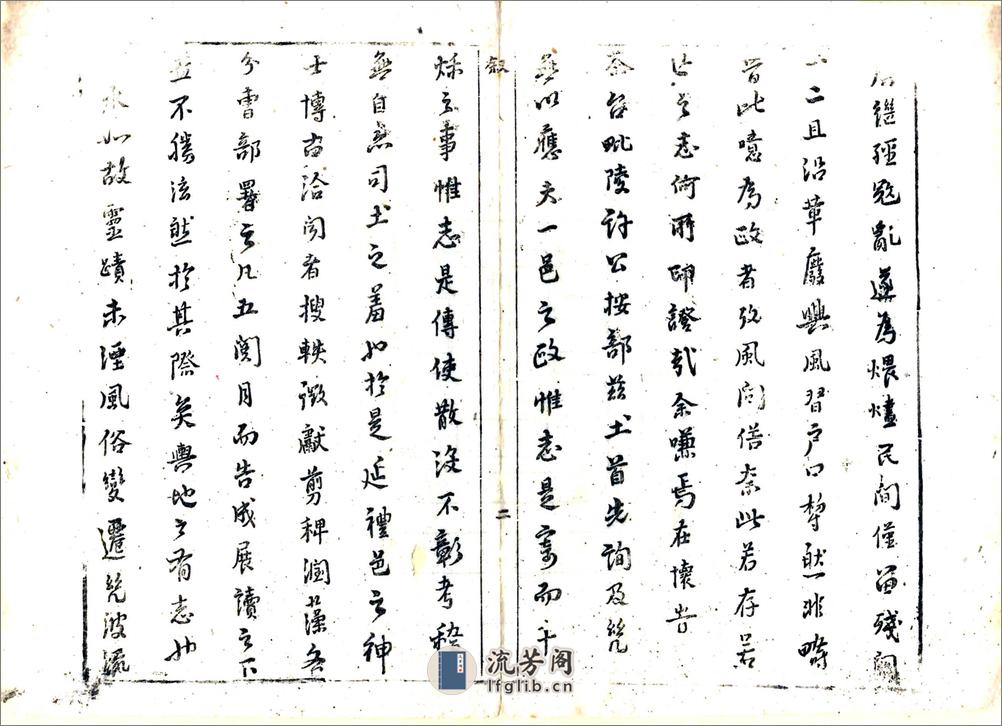 繼經寇亂遂為煨燼民間僅留殘闕
二且沿革廢興風習戶口較然非疇
昔比噫為政者攷風問俗奈此若存若
之志何所師證哉余嗛焉在懷告
茶台毗陵許公按部茲土首先詢及㒫
無以應夫一邑之政惟志是寄而千
秋之事惟志是傳使散沒不彰考稽
無自奚司土之羞也於是延禮邑之紳
士博古洽聞者搜軼徵獻剪稗潤藻各
分曹部署之凡五閱月而告成展讀之下
並不勝泫然於其際矣輿地之有志也
山水如故靈蹟未湮風俗變遷㒫波流
敘
二
流芳阁
lfglib.cn